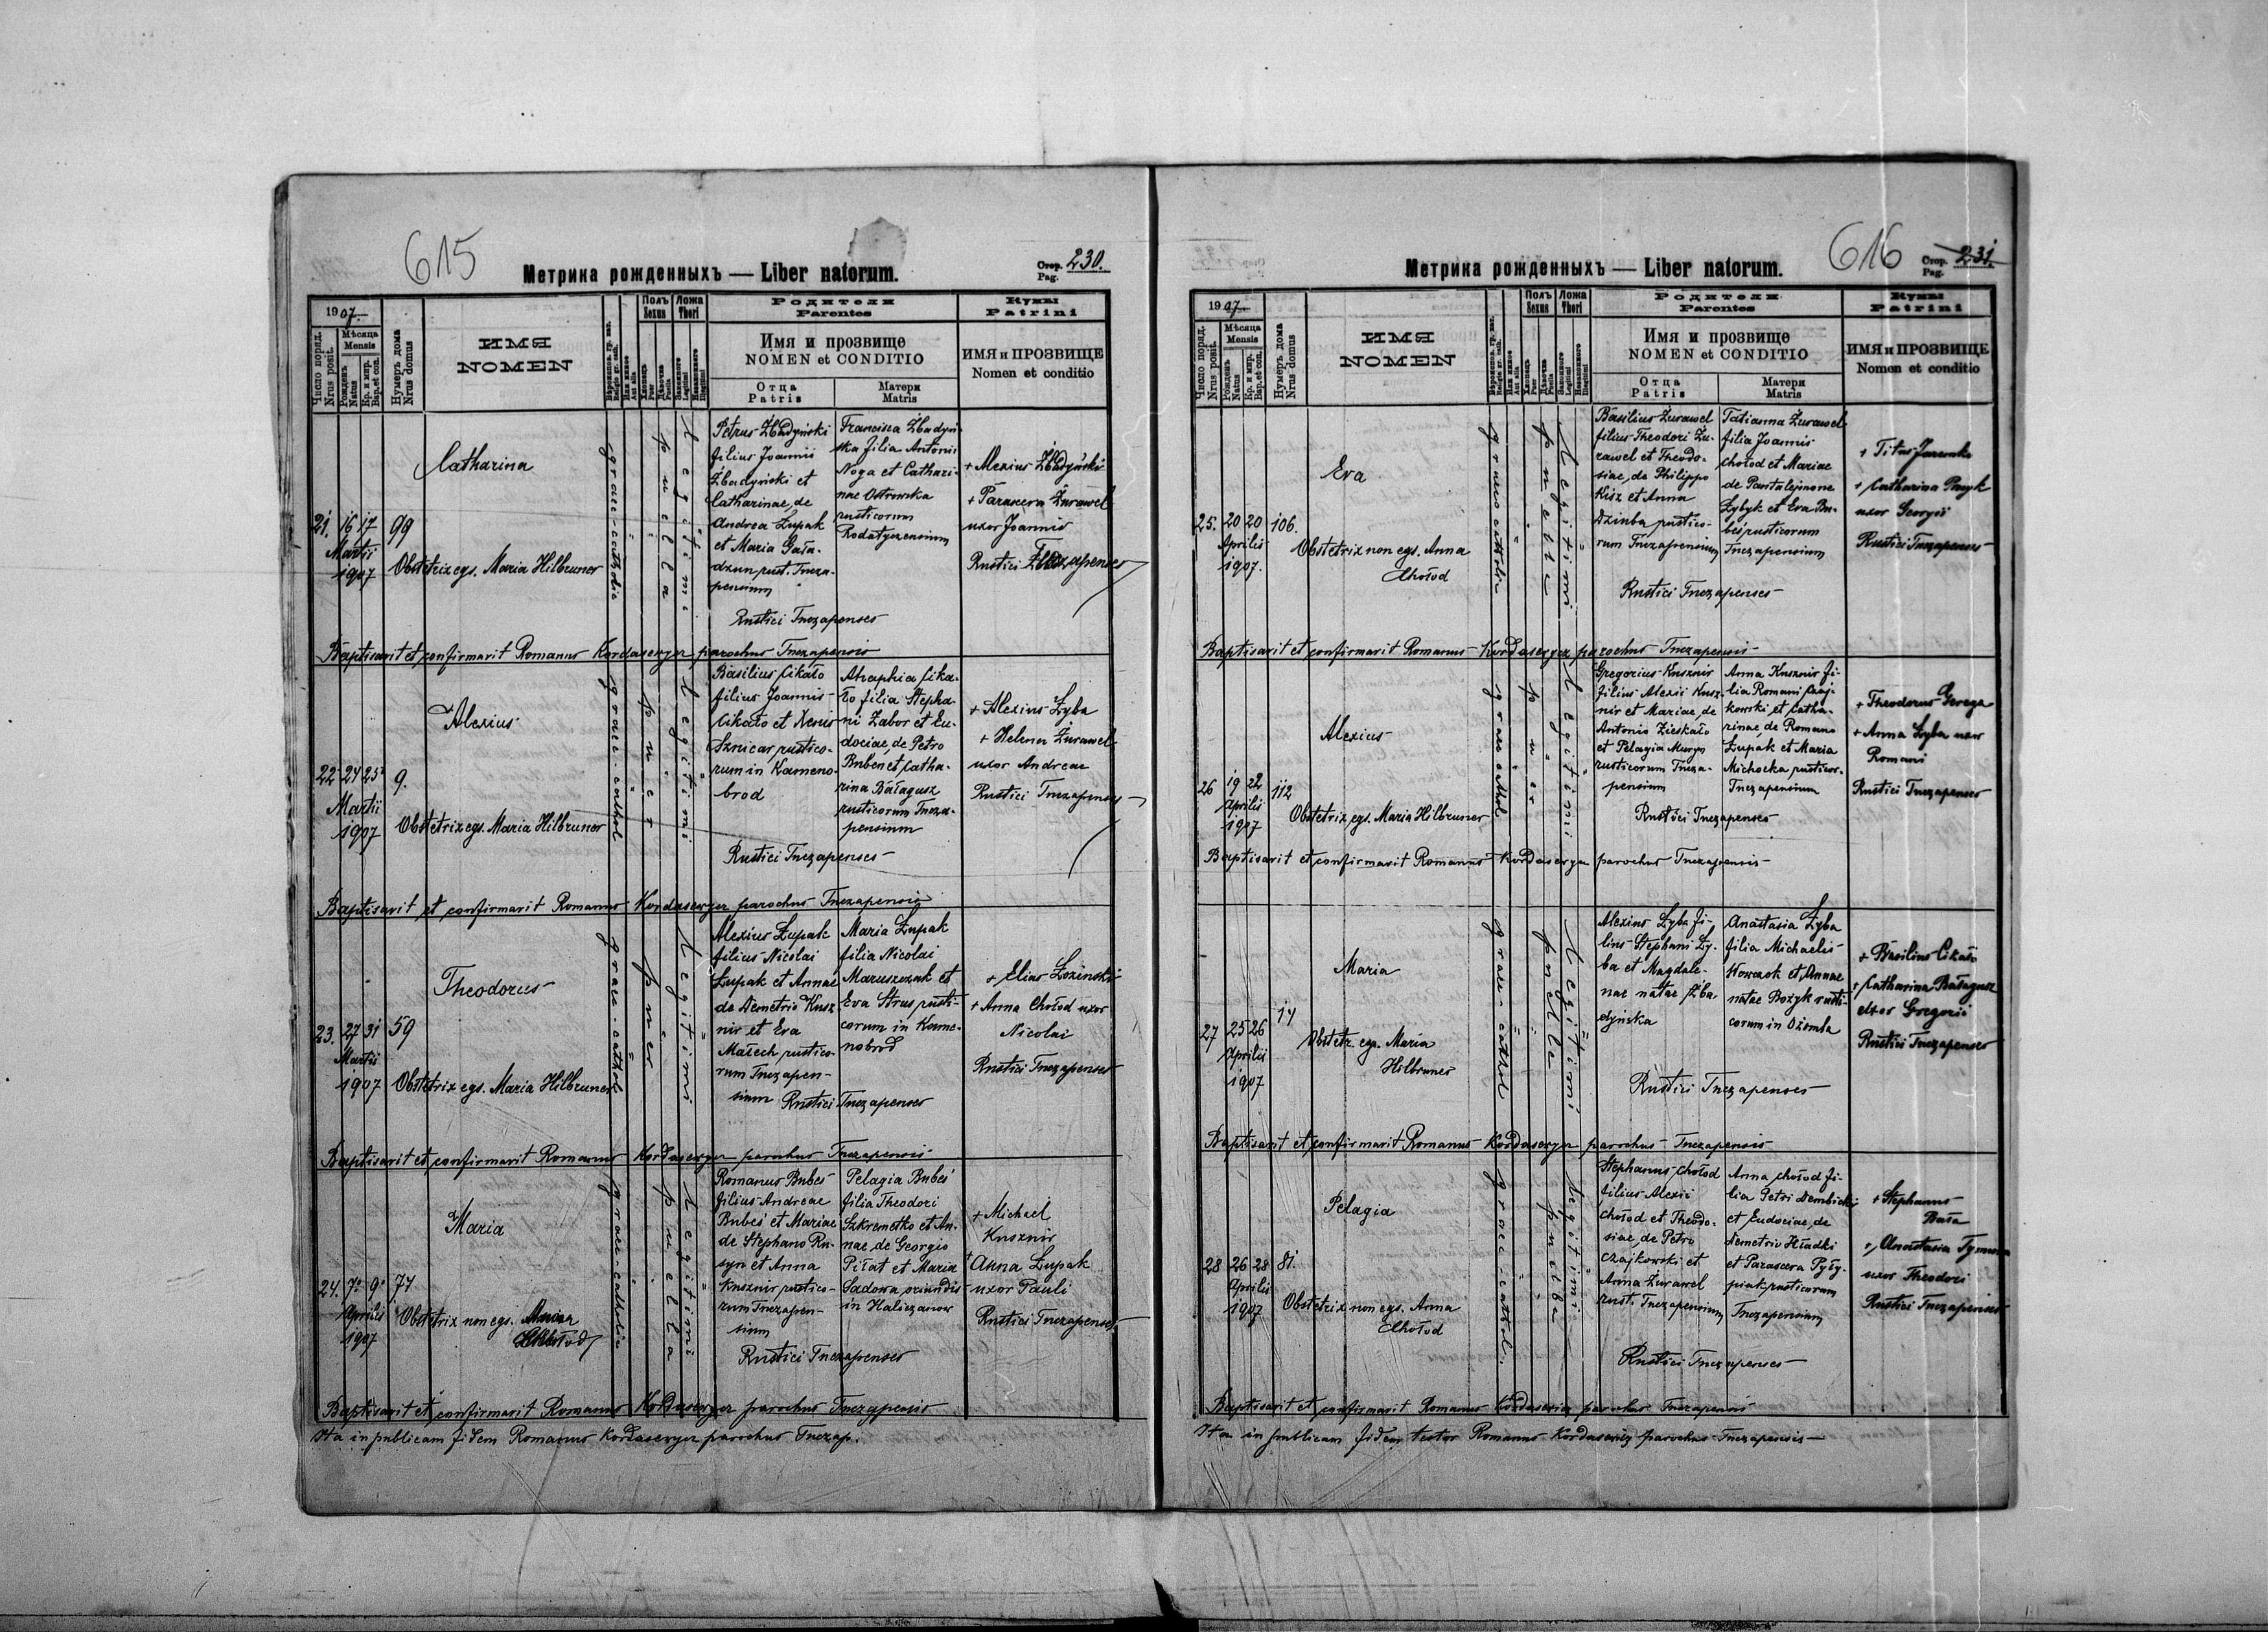 615
Метрика рожденныхъ — Liber natorum.
Стор. Pag. 230.
1907.
Число поряд. Nrus posit.
Мѣсяца Mensis
Рожденъ Natus
Кр. и мѵр. Bap. et con.
Нумеръ дома Nrus domus
ИМЯ
NOMEN
Полъ Sexus
Ложа Thori
Родители
Parentes
Имя и прозвище
NOMEN et CONDITIO
Отца Patris
Матери Matris
Кумы
Patrini
ИМЯ и ПРОЗВИЩЕ
Nomen et conditio
21. 16 17 99
Martii
1907
Catharina
Obstetrix egs. Maria Hilbruner
graec-catholic
puella
legitimi
Petrus Zbadyński
filius Joannis
Zbadyński et
Catharinae, de
Andrea Łupak
et Maria Gała-
dzun rust. Tucza-
pensium
Francisca Zbadyń-
ska filia Antonii
Noga et Cathari-
nae Ostrowska
rusticorum
Rodatyczensium
Rustici Tuczapenses
+ Alexius Zbadyński
+ Parascera Żurawel
uxor Joannis
Rustici Tuczapenses
Baptisavit et confirmavit Romanus Kordasewycz parochus Tuczapensis
22 24 25 9.
Martii
1907
Alexius
Obstetrix egs. Maria Hilbruner
graec-cathol
puer
legitimi
Basilius Cikało
filius Joannis
Cikało et Xenis
Sznicar rustico-
rum in Kameno-
brod
Ahaphia Cika-
ło filia Stepha-
ni Zabor et Eu-
dociae, de Petro
Buben et Catha-
rina Bałagusz
rusticorum Tucza-
pensium
Rustici Tuczapenses
+ Alexius Zyba
+ Helena Żurawel
uxor Andreae
Rustici Tuczapenses
Baptisavit et confirmavit Romanus Kordasewycz parochus Tuczapensis
23. 27 31 59
Martii
1907
Theodorus
Obstetrix egs. Maria Hilbruner
graec-cathol
puer
legitimi
Alexius Łupak
filius Nicolai
Łupak et Annae
de Demetrio Kusz
nir et Eva
Małech rustico-
rum Tuczapen-
sium
Maria Łupak
filia Nicolai
Maruszczak et
Eva Strus rusti-
corum in Kame-
nobrod
Rustici Tuczapenses
+ Elias Łozinski
+ Anna Chołod uxor
Nicolai
Rustici Tuczapenses
Baptisavit et confirmavit Romanus Kordasewycz parochus Tuczapensis
24. 7. 9. 74
Aprilis
1907
Maria
Obstetrix non egs.
graec-catholic
puella
legitimi
Romanus Bubeś
filius Andreae
Bubeś et Mariae
de Stephano Ru-
syn et Anna
Kusznir rustico-
rum Tuczapen-
sium
Pelagia Bubeś
filia Theodori
Szkremetko et An-
nae, de Georgio
Piłat et Maria
Sadowa oriundis
in Haliczanow
Rustici Tuczapenses
+ Michael
Kusznir
+ Anna Łupak
uxor Pauli
Rustici Tuczapenses
Baptisavit et confirmavit Romanus Kordasewycz parochus Tuczapensis
Ita in publicam fidem Romanus Kordasewycz parochus Tuczap.
616
Метрика рожденныхъ — Liber natorum.
Стор. Pag. 231.
1907.
Число поряд. Nrus posit.
Мѣсяца Mensis
Рожденъ Natus
Кр. и мѵр. Bap. et con.
Нумеръ дома Nrus domus
ИМЯ
NOMEN
Полъ Sexus
Ложа Thori
Родители
Parentes
Имя и прозвище
NOMEN et CONDITIO
Отца Patris
Матери Matris
Кумы
Patrini
ИМЯ и ПРОЗВИЩЕ
Nomen et conditio
25. 20 20 106.
Aprilis
1907.
Eva
Obstetrix non egs. Anna
Chołod
puella
legitimi
Basilius Żurawel
filius Theodori Żu-
rawel et Theodo-
siae, de Philippo
Kisz et Anna
Dziuba rustico-
rum Tuczapensium
Tatianna Żurawel
filia Joannis
Chołod et Mariae
de Pantalejmone
Zybyk et Eva Bu-
beś rusticorum
Tuczapensium
Rustici Tuczapenses
+ Titus
+ Catharina
uxor Georgii
Rustici Tuczapenses
Baptisavit et confirmavit Romanus Kordasewycz parochus Tuczapensis
26 19 22 112
Aprilis
1907
Alexius
Obstetrix egs. Maria Hilbruner
puer
legitimi
Gregorius Kusznir
filius Alexii Kusz-
nir et Mariae, de
Antonio Zieskało
et Pelagia Muryn
rusticorum Tucza-
pensium
Anna Kusznir fi-
lia Romani Czaj-
kowski et Catha-
rinae, de Romano
Łupak et Maria
Michocka rusticor.
Tuczapensium
Rustici Tuczapenses
+ Theodorus Gerega
+ Anna Zyba uxor
Romani
Rustici Tuczapenses
Baptisavit et confirmavit Romanus Kordasewycz parochus Tuczapensis
27 25 26 14
Aprilis
1907
Maria
Obstetr. egs. Maria
Hilbruner
graec-cathol
puella
legitimi
Alexius Zyba fi-
lius Stephani Zy-
ba et Magdale-
nae natae Zba-
dyńska
Anastasia Zyba
filia Michaelis
Nowczok et Annae
natae Bożyk rusti-
corum in Ożomla
Rustici Tuczapenses
+ Basilius Cikało
+ Catharina Bałagusz
uxor Gregorii
Rustici Tuczapenses
Baptisavit et confirmavit Romanus Kordasewycz parochus Tuczapensis
28 26 28 81.
Aprilis
1907
Pelagia
Obstetrix non egs. Anna
Chołod
graec-cathol.
legitimi
Stephanus Chołod
filius Alexii
Chołod et Theodo-
siae, de Petro
Czajkowski et
Anna Żurawel
rust. Tuczapensium
Anna Chołod fi-
lia Petri Dembicki
et Eudociae, de
Demetrio Hładki
et Parascera Pyły-
piak rusticorum
Tuczapensium
Rustici Tuczapenses
+ Stephanus
+ Anastasia
uxor Theodori
Rustici Tuczapenses
Baptisavit et confirmavit Romanus Kordasewicz parochus Tuczapensis
Ita in publicam fidem testor Romanus Kordasewicz parochus Tuczapensis